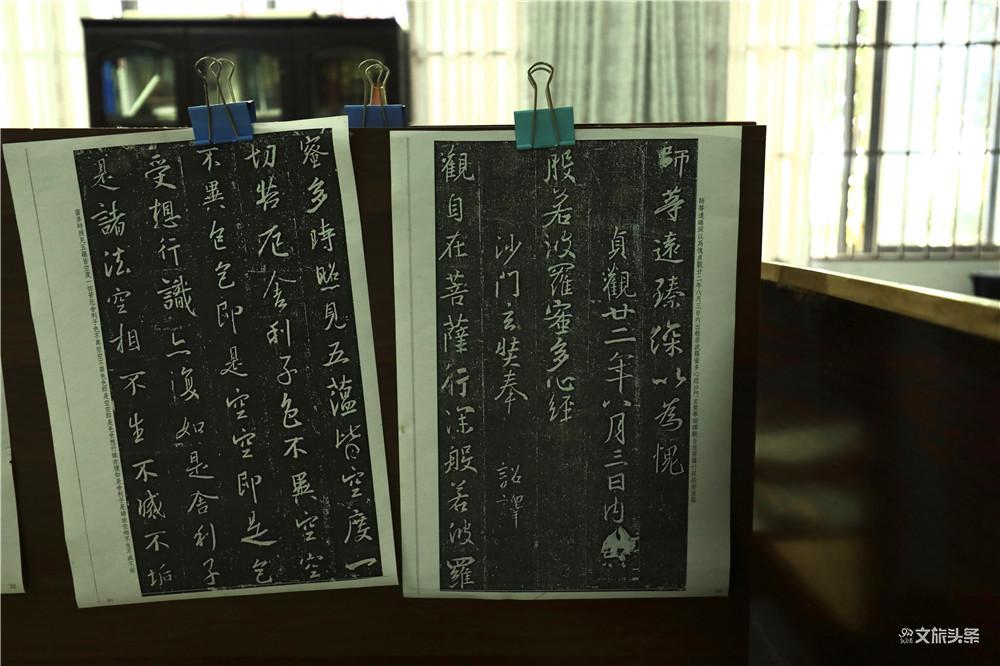 師等遠臻深以為愧
貞觀廿二年八月三日內
般若波羅蜜多心經
沙門玄奘奉 詔譯
觀自在菩薩行深般若波羅
蜜多時照見五蘊皆空度一
切苦厄舍利子色不異空空
不異色色即是空空即是色
受想行識亦復如是舍利子
是諸法空相不生不滅不垢
文旅头条